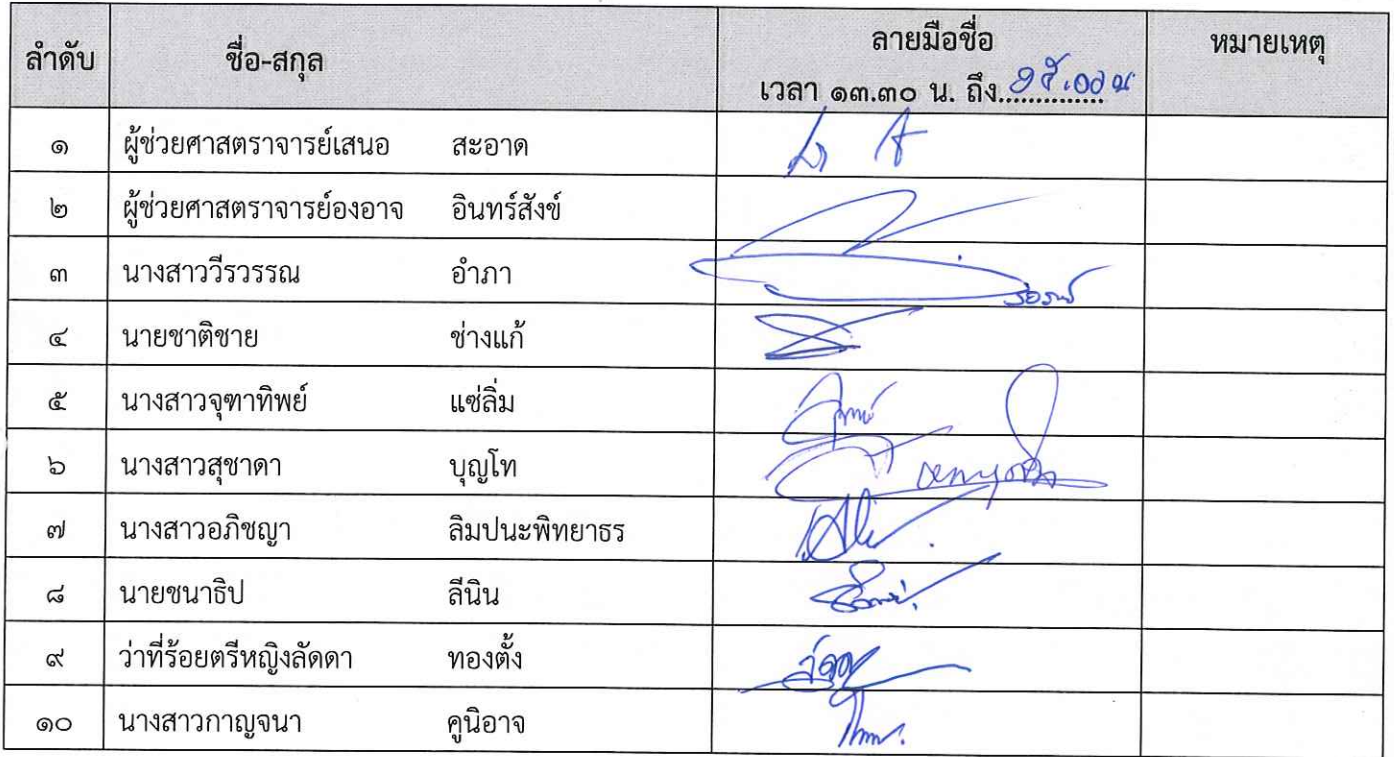 ลำดับ ชื่อ-สกุล ลายมือชื่อ หมายเหตุ
เวลา ๑๓.๓๐ น. ถึง..............
๑ ผู้ช่วยศาสตราจารย์เสนอ สะอาด
๒ ผู้ช่วยศาสตราจารย์องอาจ อินทร์สังข์
๓ นางสาววีรวรรณ อำภา
๔ นายชาติชาย ช่างแก้
๕ นางสาวจุฑาทิพย์ แซ่ลิ่ม
๖ นางสาวสุชาดา บุญโท
๗ นางสาวอภิชญา ลิมปนะพิทยาธร
๘ นายชนาธิป ลีนิน
๙ ว่าที่ร้อยตรีหญิงลัดดา ทองตั้ง
๑๐ นางสาวกาญจนา คูนิอาจ